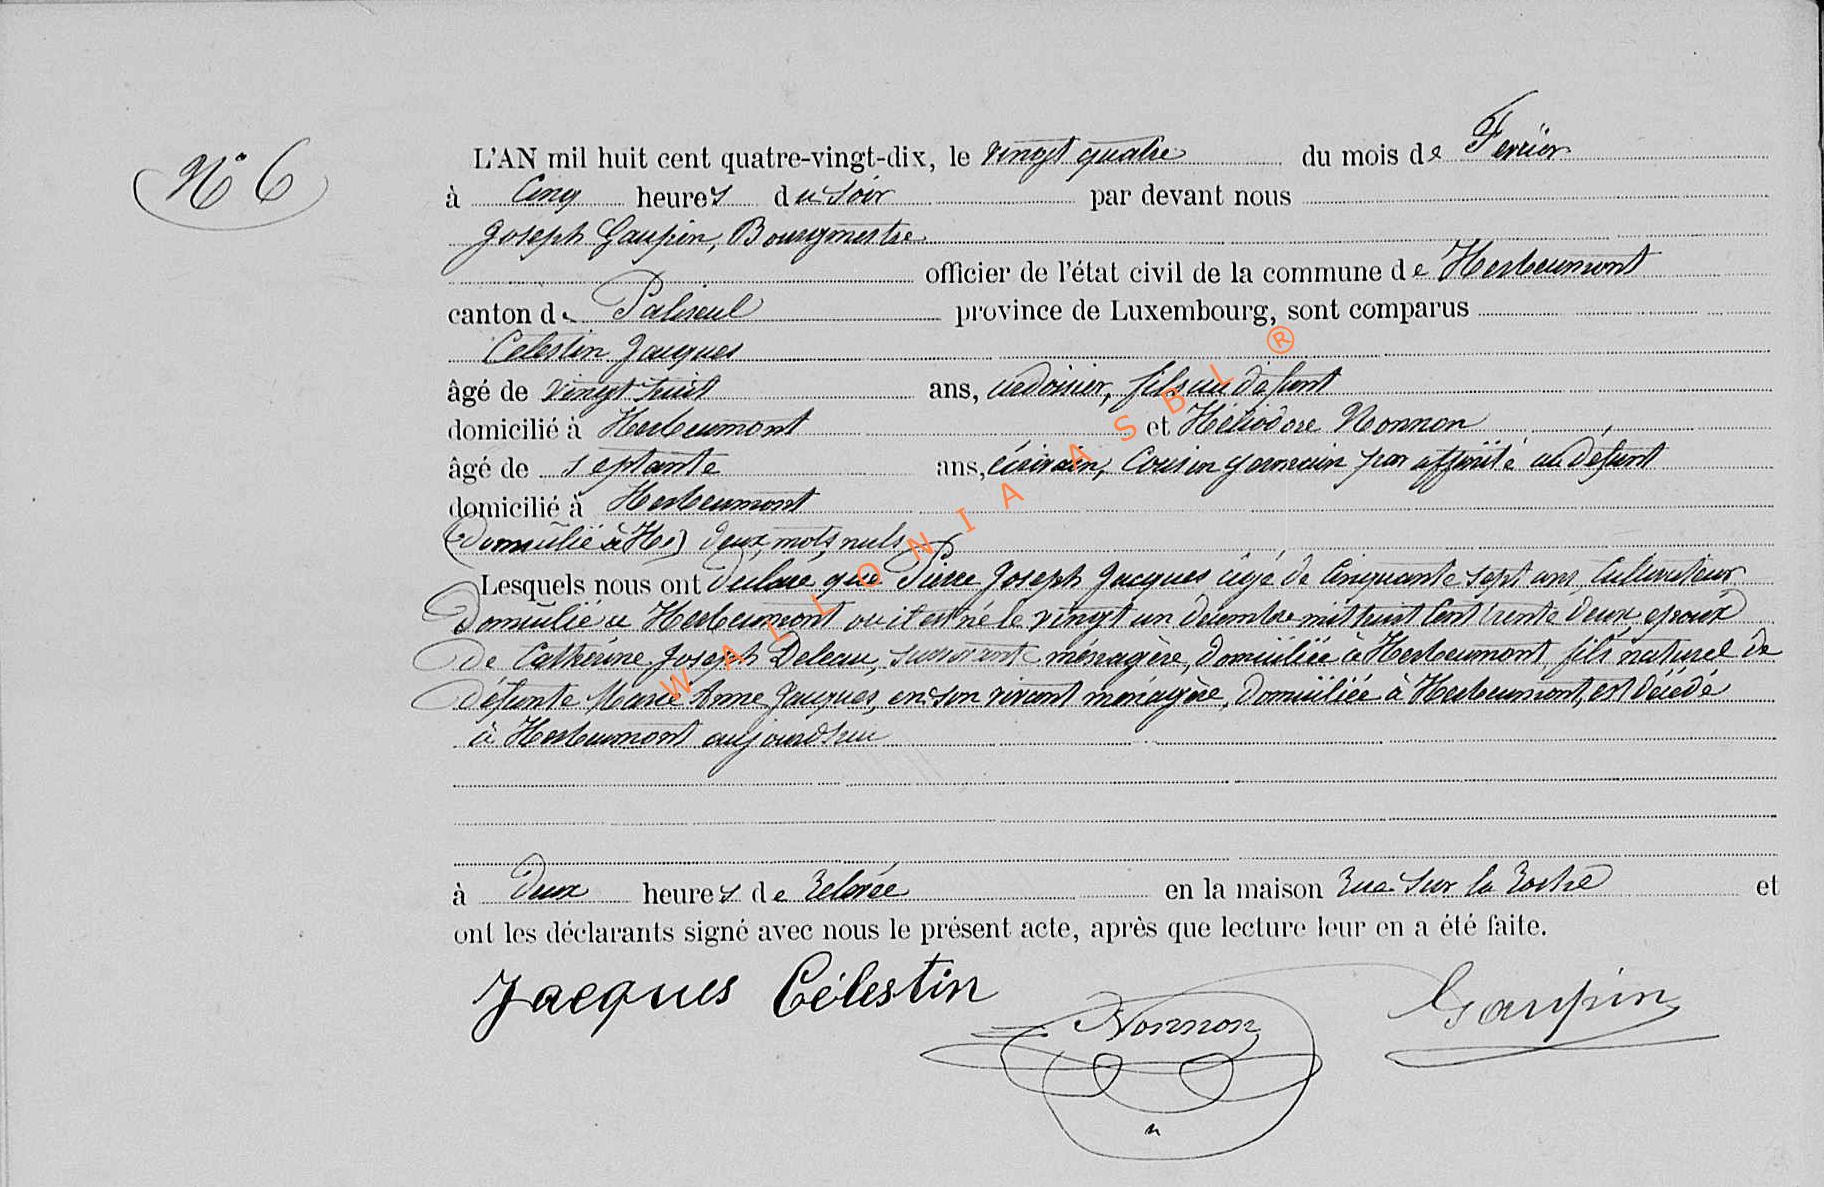 N° 6
L'AN mil huit cent quatre-vingt-dix, le vingt quatre du mois de Fevrier
à Cinq heures du soir par devant nous
Joseph Gaupin, Bourgmestre
officier de l'état civil de la commune de Herbeumont
canton de Paliseul province de Luxembourg, sont comparus
Celestin Jacques
âgé de vingt huit ans, ardoisier, fils au défunt
domicilié à Herbeumont et Héliodore Nonnon
âgé de septante ans, écrivain, Cousin germain par affinité au défunt
domicilié à Herbeumont
(Domicilié à He) deux mots nuls
Lesquels nous ont déclaré que Pierre Joseph Jacques âgé de Cinquante sept ans, Cultivateur
Domicilié à Herbeumont où il est né le vingt un décembre mil huit Cent trente deux époux
de Cathérine Joseph Deleau, survivante ménagère, domiciliée à Herbeumont, fils naturel de
défunte Marie Anne Jacques, en son vivant ménagère, domiciliée à Herbeumont, est décédé
à Herbeumont aujourd'hui
à Deux heures de Relevée en la maison Rue Sur la Roche et
ont les déclarants signé avec nous le présent acte, après que lecture leur en a été faite.
Jacques Célestin
Nonnon
Gaupin
WALLONIA ASBL ®